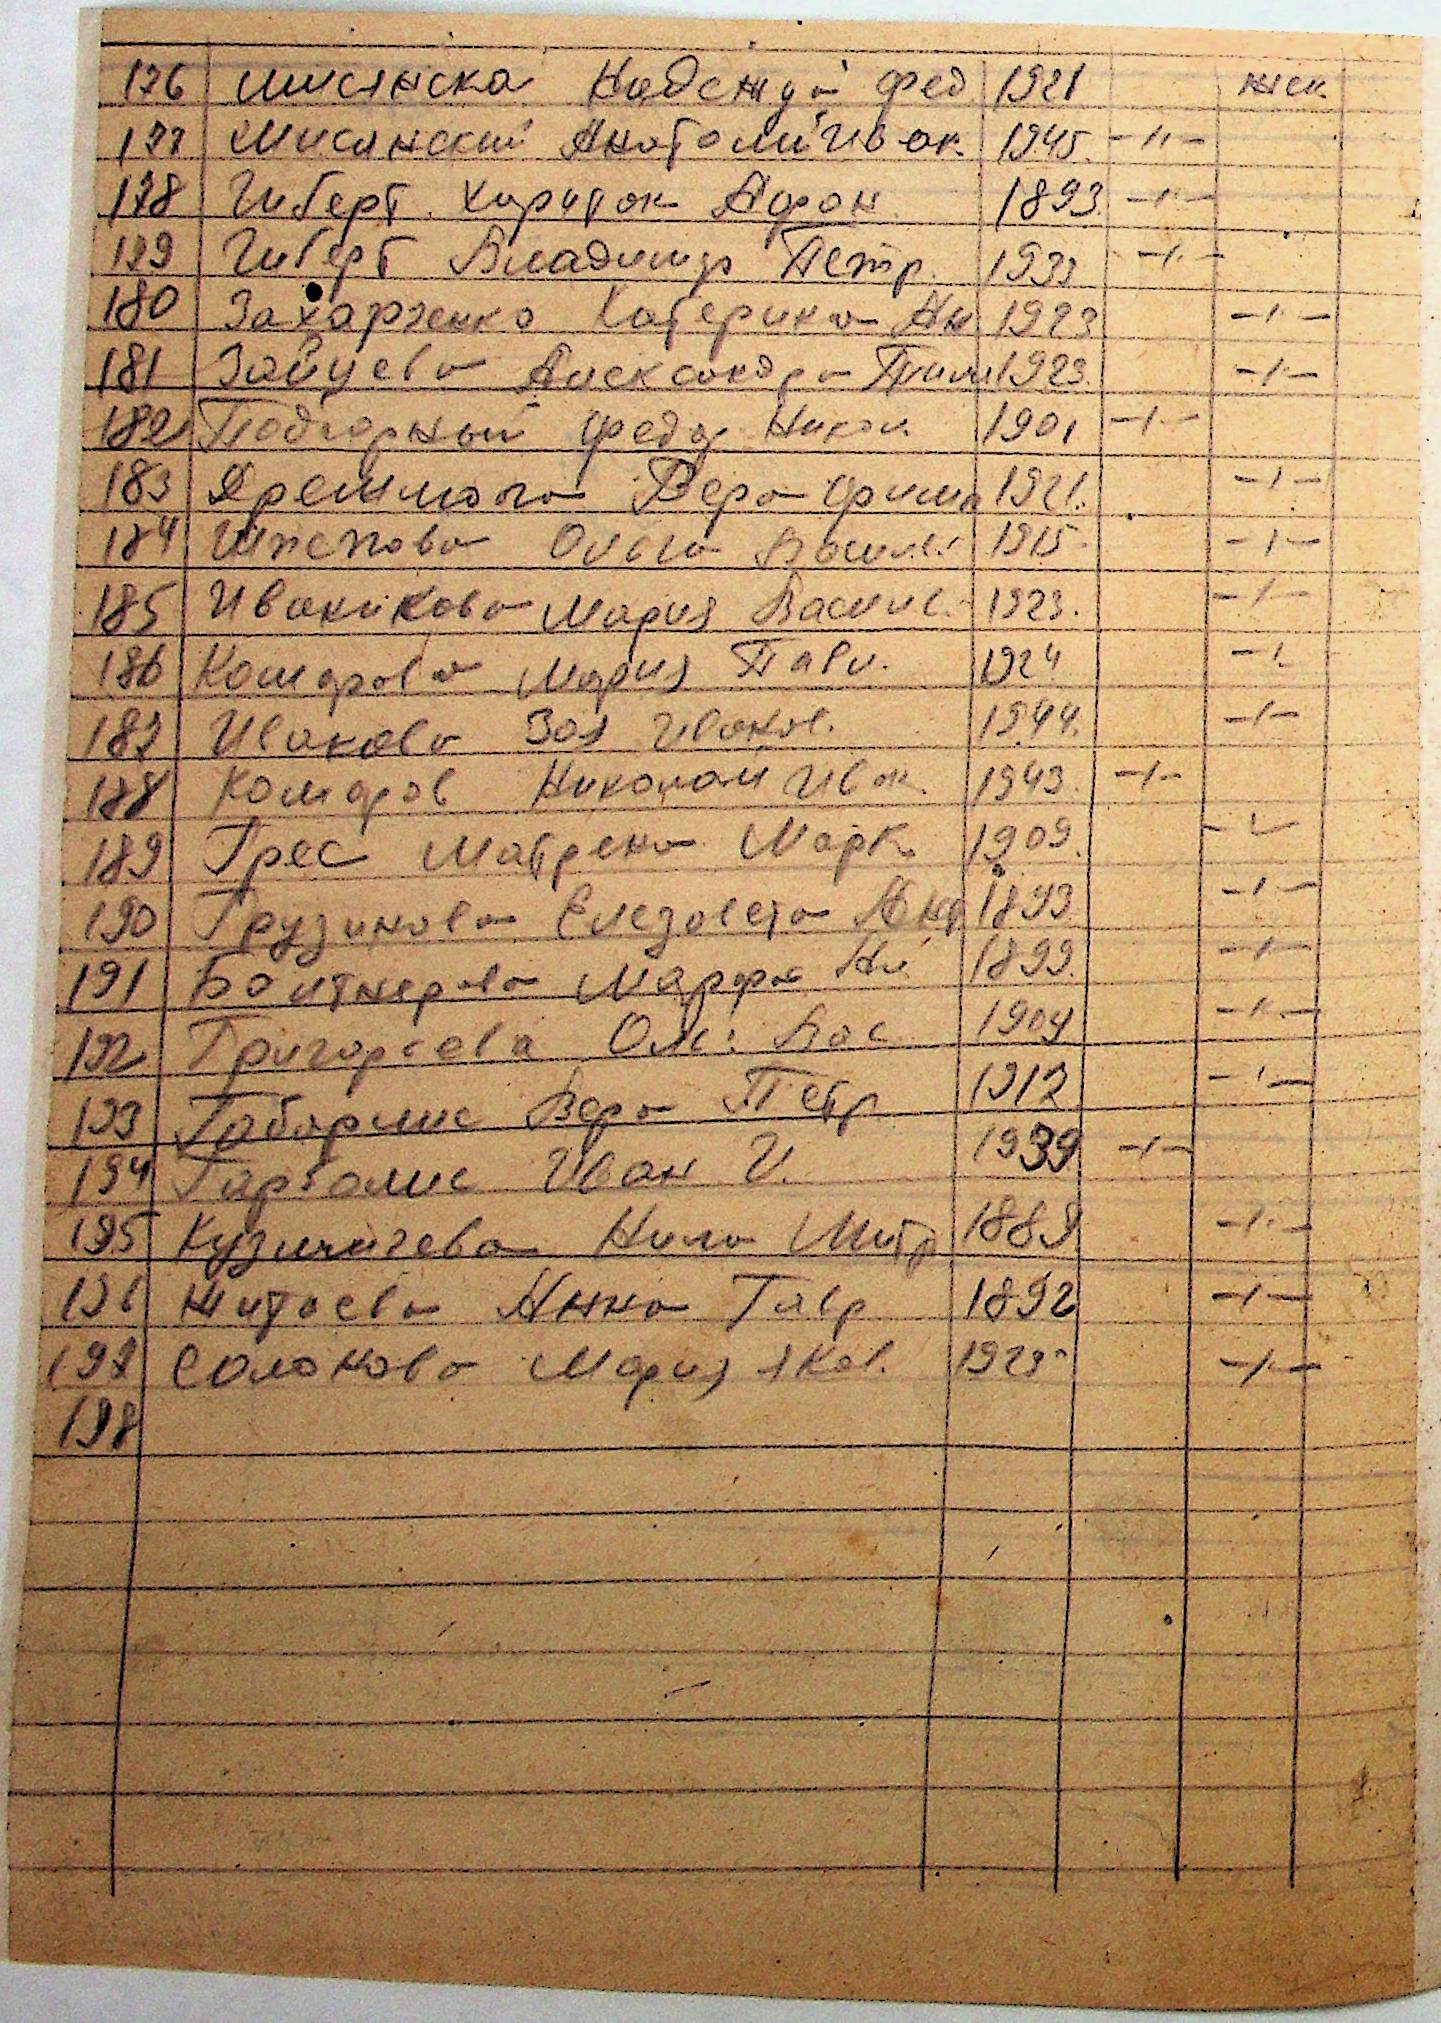 176 Мисянска Надежда Фед 1921 жен.
177 Мисянский Анатолий Иван. 1945. -"-
178 Гиберт Харитон Афон 1893. -"-
179 Гиберт Владимир Петр. 1933 -"-
180 Захарченко Катерина Ан 1923 -"-
181 Зайцева Александра 1923. -"-
182 Подгорный Федор Никол. 1901 -"-
183 Вера 1921. -"-
184 Ольга Васил. 1915 -"-
185 Иваникова Мария Васил. 1923. -"-
186 Комарова Мария Павл. 1924 -"-
187 Иванова Зоя Иванов. 1944. -"-
188 Комаров Николай Иван. 1943. -"-
189 Грес Матрена Марк. 1909. -"-
190 Грузинова Елезовета 1893 -"-
191 Марфа 1899. -"-
192 Григорьева Ол. Вас 1904 -"-
193 Вера Петр 1912 -"-
194 Иван И. 1939 -"-
195 Кузмичева Нила Митр 1889 -"-
196 Житаева Анна Гавр 1892 -"-
197 Солонова Мария Яков. -"-
198